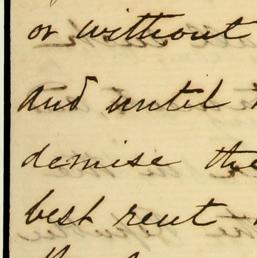 or without
and until
demise the
best rent